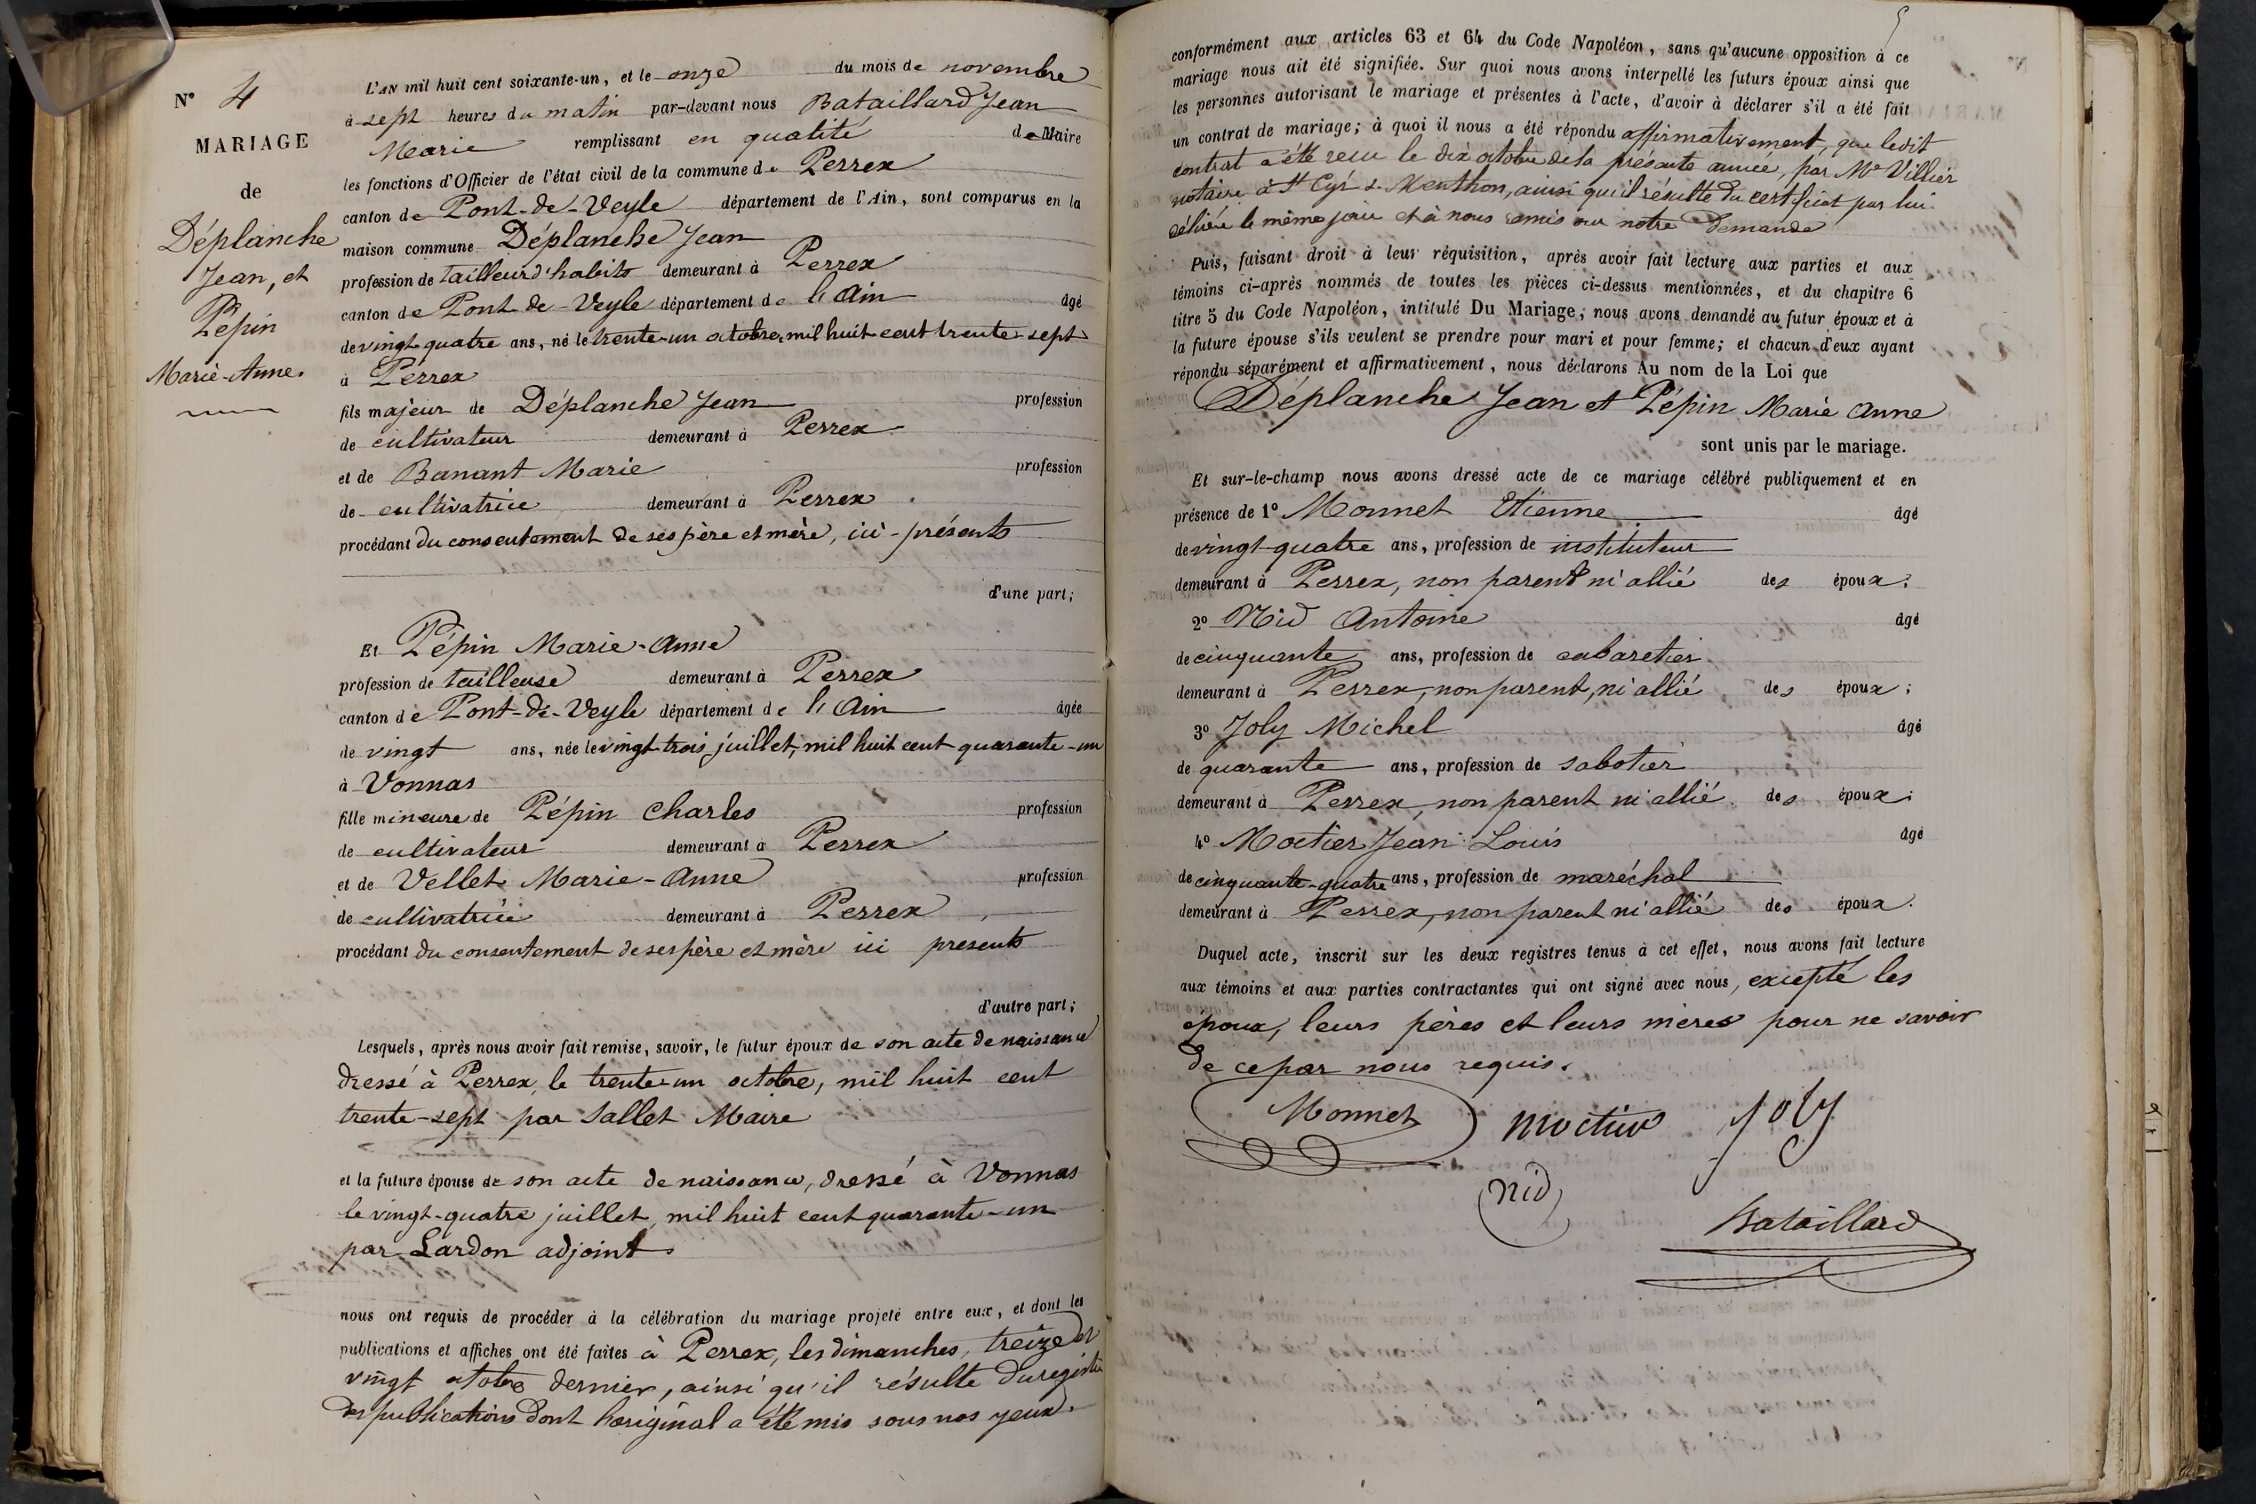 N° 4
MARIAGE
de
Déplanche
Jean, et
Pépin
Marie-Anne.
L'AN mil huit cent soixante-un, et le onze du mois de novembre
à sept heures du matin par-devant nous Bataillard Jean
Marie remplissant en qualité de Maire
les fonctions d'Officier de l'état civil de la commune de Perrex
canton de Pont-de-Veyle département de l'Ain, sont comparus en la
maison commune Déplanche Jean
profession de tailleur d'habits demeurant à Perrex
canton de Pont-de-Veyle département de l'Ain âgé
de vingt quatre ans, né le trente-un octobre, mil huit cent trente-sept
à Perrex
fils majeur de Déplanche Jean profession
de cultivateur demeurant à Perrex
et de Banant Marie profession
de cultivatrice demeurant à Perrex
procédant du consentement de ses père et mère, ici-présents
d'une part;
Et Pépin Marie-Anne
profession de tailleuse demeurant à Perrex
canton de Pont-de-Veyle département de l'Ain âgée
de vingt ans, née le vingt-trois juillet, mil huit cent quarante-un
à Vonnas
fille mineure de Pépin Charles profession
de cultivateur demeurant à Perrex
et de Vellet Marie-Anne profession
de cultivatrice demeurant à Perrex
procédant du consentement de ses père et mère ici presents
d'autre part;
Lesquels, après nous avoir fait remise, savoir, le futur époux de son acte de naissance
dressé à Perrex le trente-un octobre, mil huit cent
trente-sept par Sallet Maire
et la future épouse de son acte de naissance, dressé à Vonnas
le vingt-quatre juillet, mil huit cent quarante-un
par Lardon adjoint
nous ont requis de procéder à la célébration du mariage projeté entre eux, et dont les
publications et affiches ont été faites à Perrex, les dimanches, treize et
vingt octobre dernier, ainsi qu'il résulte du registre
des publications dont l'original a été mis sous nos yeux.
5
conformément aux articles 63 et 64 du Code Napoléon, sans qu'aucune opposition à ce
mariage nous ait été signifiée. Sur quoi nous avons interpellé les futurs époux ainsi que
les personnes autorisant le mariage et présentes à l'acte, d'avoir à déclarer s'il a été fait
un contrat de mariage; à quoi il nous a été répondu affirmativement, que ledit
contrat a été recu le dix octobre de la présente année, par Me Villier
notaire à St Cyr s. Menthon, ainsi qu'il résulte du certificat par lui
délivré le même jour et à nous remis sur notre demande
Puis, faisant droit à leur réquisition, après avoir fait lecture aux parties et aux
témoins ci-après nommés de toutes les pièces ci-dessus mentionnées, et du chapitre 6
titre 5 du Code Napoléon, intitulé Du Mariage, nous avons demandé au futur époux et à
la future épouse s'ils veulent se prendre pour mari et pour femme; et chacun d'eux ayant
répondu séparément et affirmativement, nous déclarons Au nom de la Loi que
Déplanche Jean et Pépin Marie Anne
sont unis par le mariage.
Et sur-le-champ nous avons dressé acte de ce mariage célébré publiquement et en
présence de 1° Monnet Etienne âgé
de vingt-quatre ans, profession de instituteur
demeurant à Perrex, non parent ni allié des époux;
2° Nid Antoine âgé
de cinquante ans, profession de cabaretier
demeurant à Perrex, non parent, ni allié des époux;
3° Joly Michel âgé
de quarante ans, profession de sabotier
demeurant à Perrex, non parent ni allié des époux;
4° Moctier Jean-Louis âgé
de cinquante-quatre ans, profession de maréchal
demeurant à Perrex, non parent ni allié des époux.
Duquel acte, inscrit sur les deux registres tenus à cet effet, nous avons fait lecture
aux témoins et aux parties contractantes qui ont signé avec nous, excepté les
époux, leurs pères et leurs mères pour ne savoir
de ce par nous requis.
Monnet Moctier Joly
Nid
Bataillard